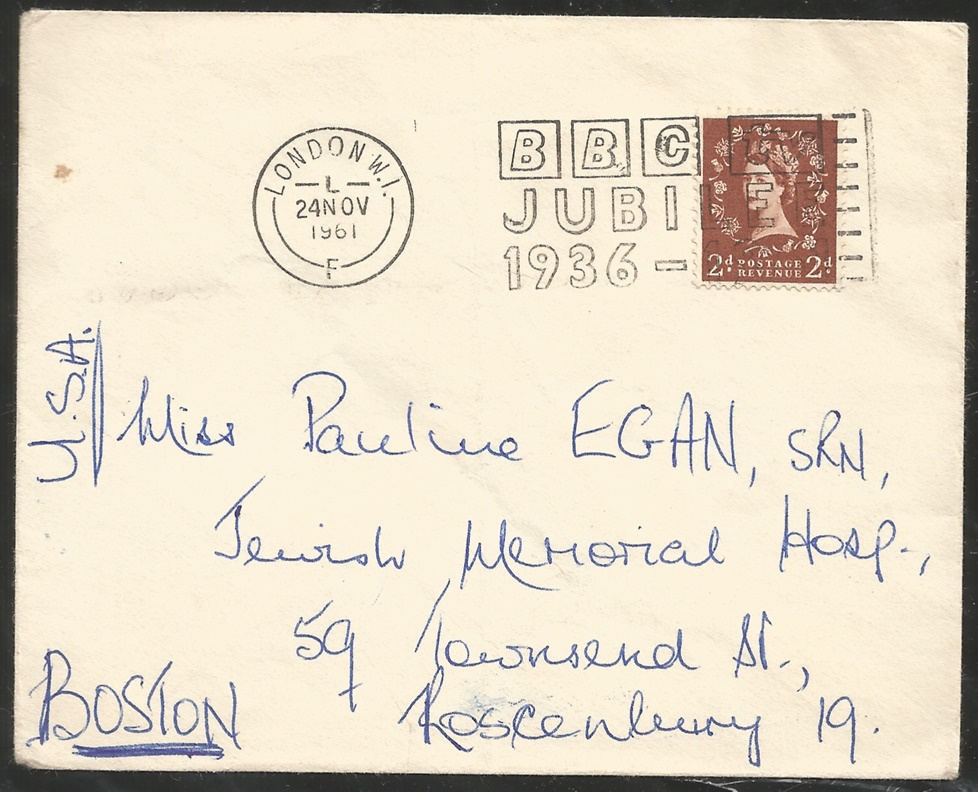 LONDON W.1.
— L —
24 NOV
1961
F
BBC TV
JUBILEE
1936 –
2d POSTAGE REVENUE 2d
U.S.A.
Miss Pauline EGAN, SRN,
Jewish Memorial Hosp.,
59 Townsend St.,
Roscenbury 19.
BOSTON